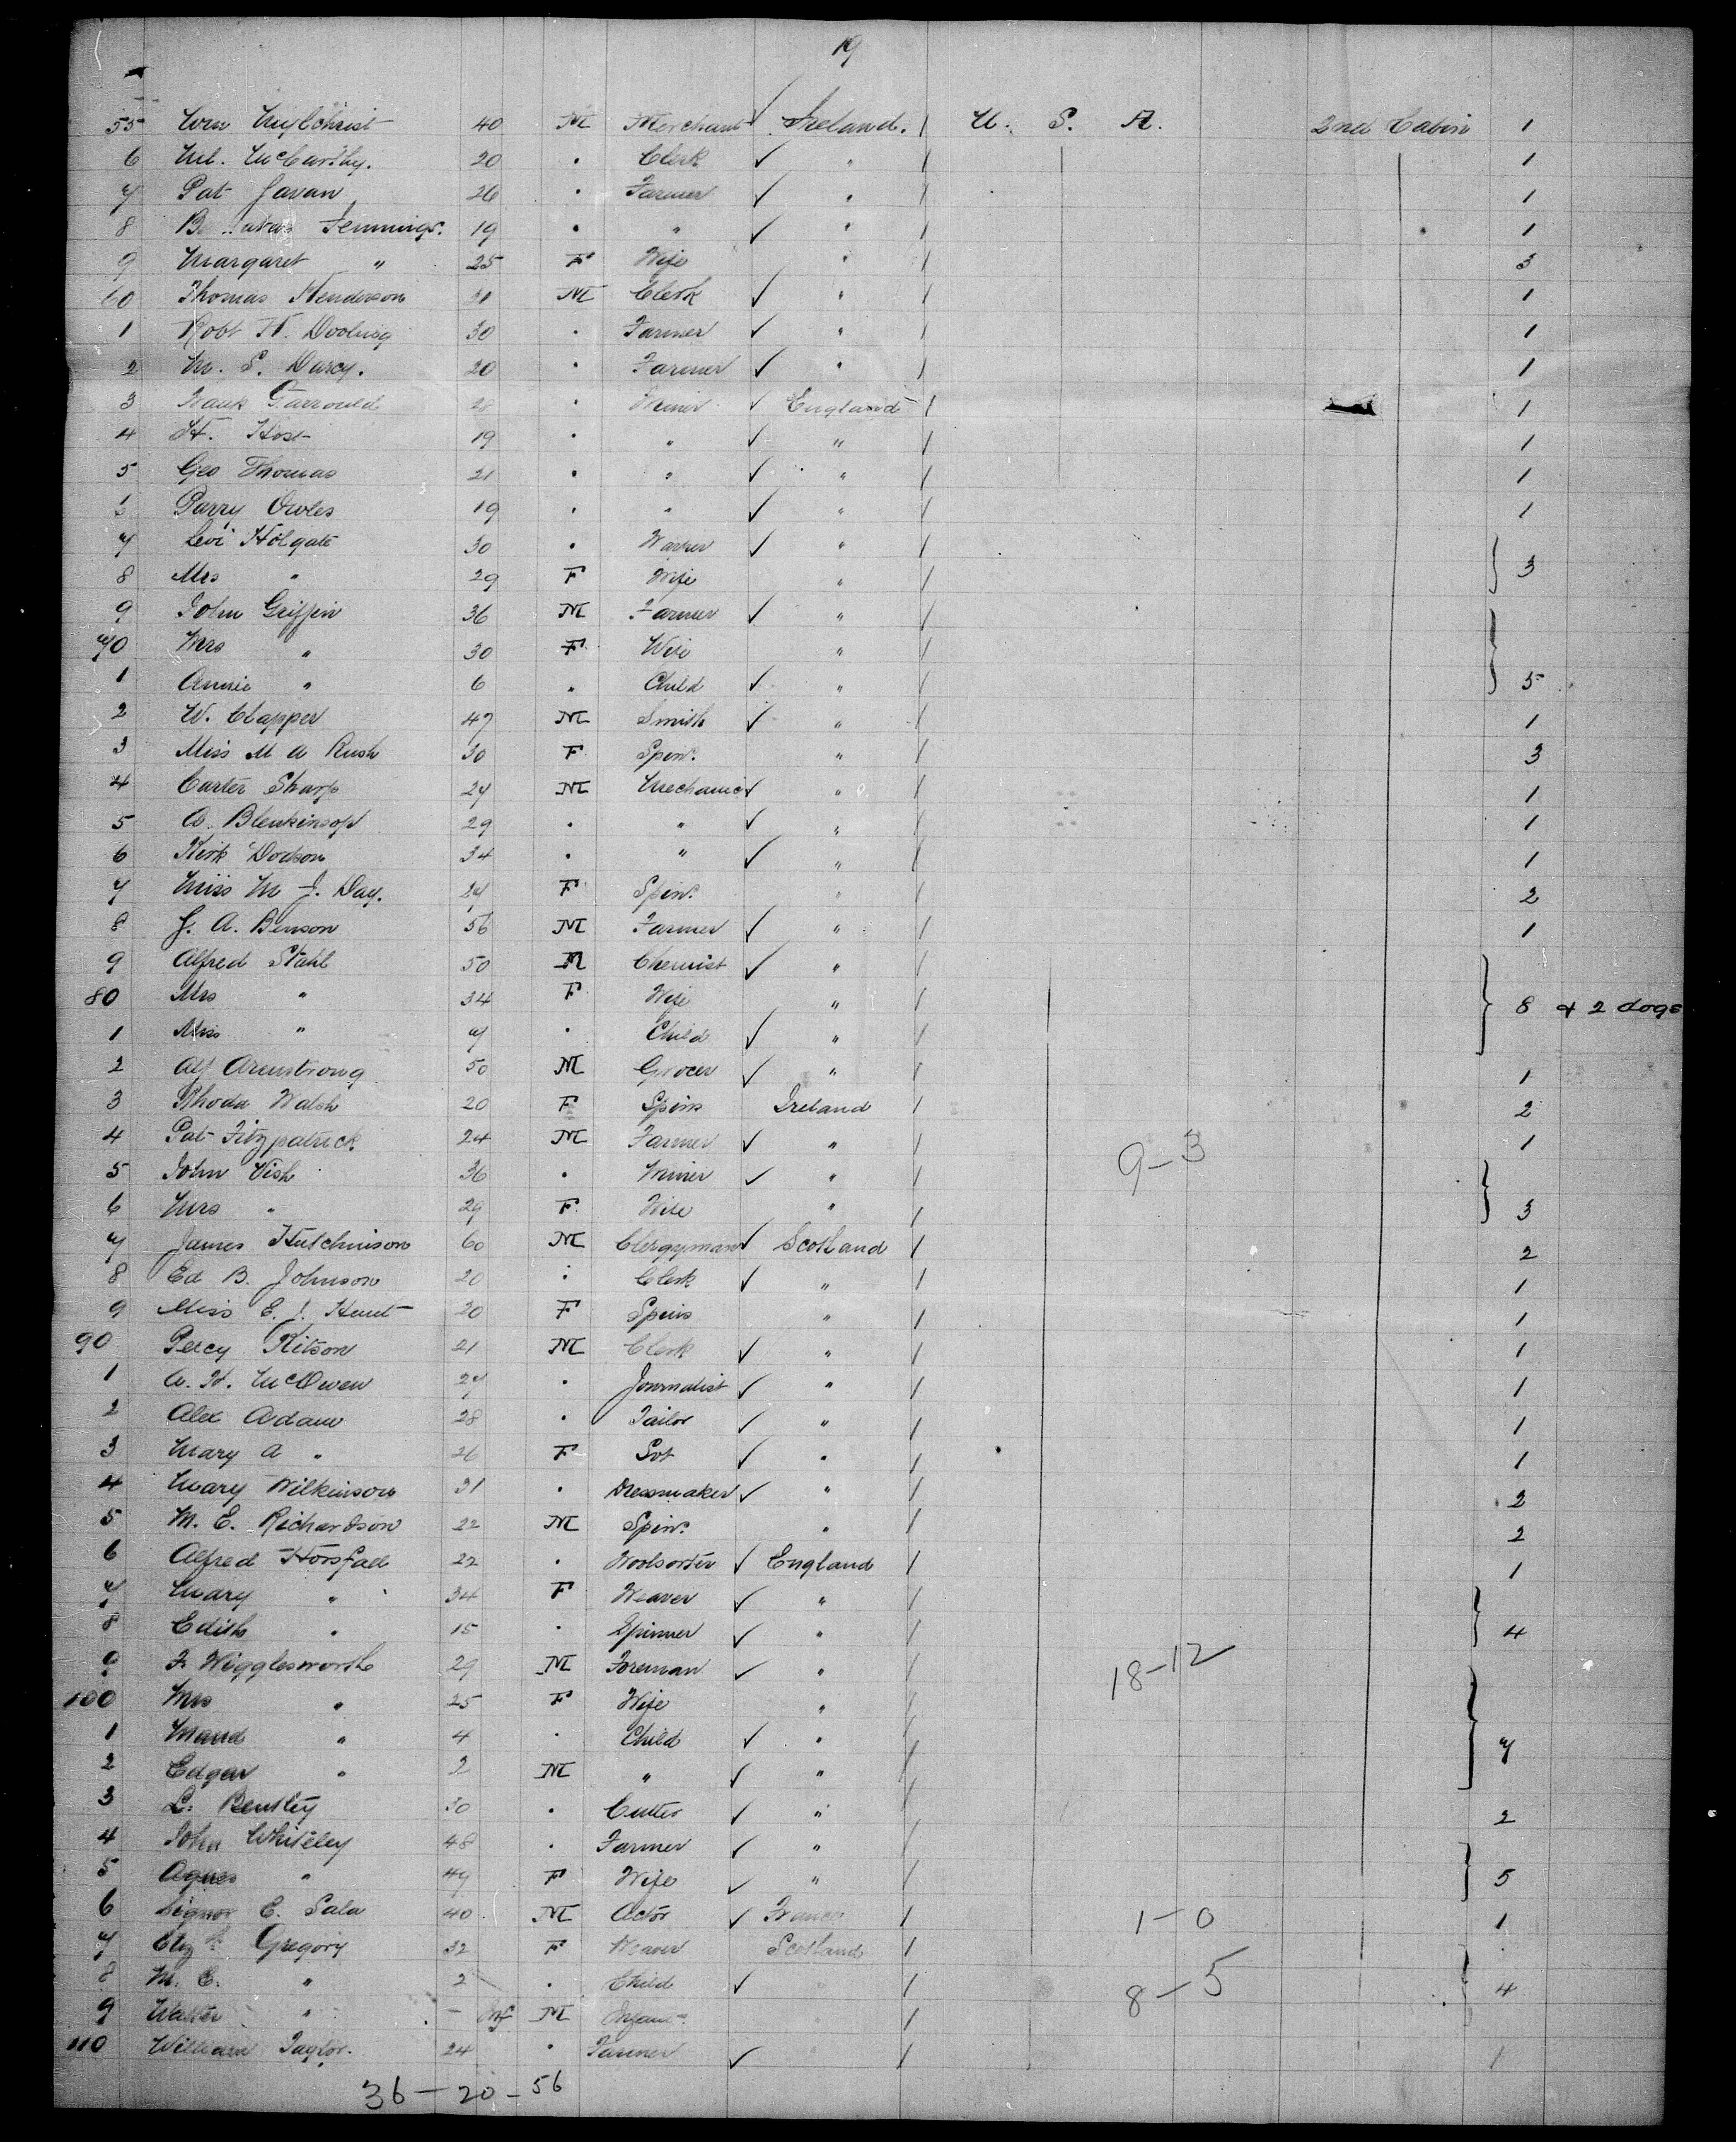 19
55 Wm 40 M Merchant ✓ Ireland. / U. S. A. 2nd Cabin 1
6 Ml. McCarthy. 20 . Clerk ✓ " / 1
7 Pat Javan 26 . Farmer ✓ " / 1
8 Jennings. 19 . " ✓ " / 1
9 Margaret " 25 F Wife " / 3
60 Thomas Henderson M Clerk ✓ " / 1
1 Robt H. 30 . Farmer ✓ " / 1
2 M. S. Darcy. 20 . Farmer ✓ " / 1
3 Frank Garrould 28 . Miner ✓ England / 1
4 H. 19 . " ✓ " / 1
5 Geo Thomas 21 . " ✓ " / 1
6 Parry Owles 19 . " ✓ " / 1
7 Levi Holgate 30 . Warper ✓ " /
8 Mrs " 29 F Wife " / } 3
9 John Griffin 36 M Farmer ✓ " /
70 Mrs " 30 F Wife " /
1 Annie " 6 " Child ✓ " / } 5
2 W. Clapper 47 M Smith ✓ " / 1
3 Miss M A Rush 30 F Spin. " / 3
4 Carter Sharp 27 M Mechanic ✓ " / 1
5 A. Blenkinsop 29 . " ✓ " / 1
6 Kirk Dodson 34 . " ✓ " / 1
7 Miss M J. Day. 27 F Spin. " / 2
8 J. A. Benson 56 M Farmer ✓ " / 1
9 Alfred Stahl 50 M Chemist ✓ " /
80 Mrs " 34 F Wife " / } 8 & 2 dogs
1 Miss " 7 . Child ✓ " /
2 Alf Armstrong 50 M Grocer ✓ " / 1
3 Rhoda Walsh 20 F Spins Ireland / 2
4 Pat Fitzpatrick 24 M Farmer ✓ " / 9-3 1
5 John Vish 36 . Miner ✓ " /
6 Mrs " 29 F Wife " / } 3
7 James Hutchinson 60 M Clergyman ✓ Scotland / 2
8 Ed B. Johnson 20 . Clerk ✓ " / 1
9 Miss E. J. Hunt 20 F Spins " / 1
90 Percy Kitson 21 M Clerk ✓ " / 1
1 A. H. McOwen 27 . Journalist ✓ " / 1
2 Alex Adam 28 . Tailor ✓ " / 1
3 Mary A " 26 F Svt ✓ " / 1
4 Mary Wilkinson 31 . Dressmaker ✓ " / 2
5 M. E. Richardson 22 M Spin. " / 2
6 Alfred Horsfall 22 . Woolsorter ✓ England / 1
7 Mary " 34 F Weaver ✓ " /
8 Edith " 15 . Spinner ✓ " / } 4
9 F. Wigglesworth 29 M Foreman ✓ " / 18-12
100 Mrs " 25 F Wife " /
1 Maud " 4 . Child ✓ " / } 7
2 Edgar " 2 M " ✓ " /
3 L. Bentley 30 . Cutter ✓ " / 2
4 John Whiteley 48 . Farmer ✓ " /
5 Agnes " 49 F Wife ✓ " / } 5
6 Signor E. Sala 40 M Actor ✓ France / 1-0 1
7 Elizth Gregory 32 F Weaver Scotland /
8 M. E. " 2 . Child ✓ " / 8-5 } 4
9 Walter " - Inf M Infant " /
110 William Taylor. 24 . Farmer ✓ " / 1
36-20-56